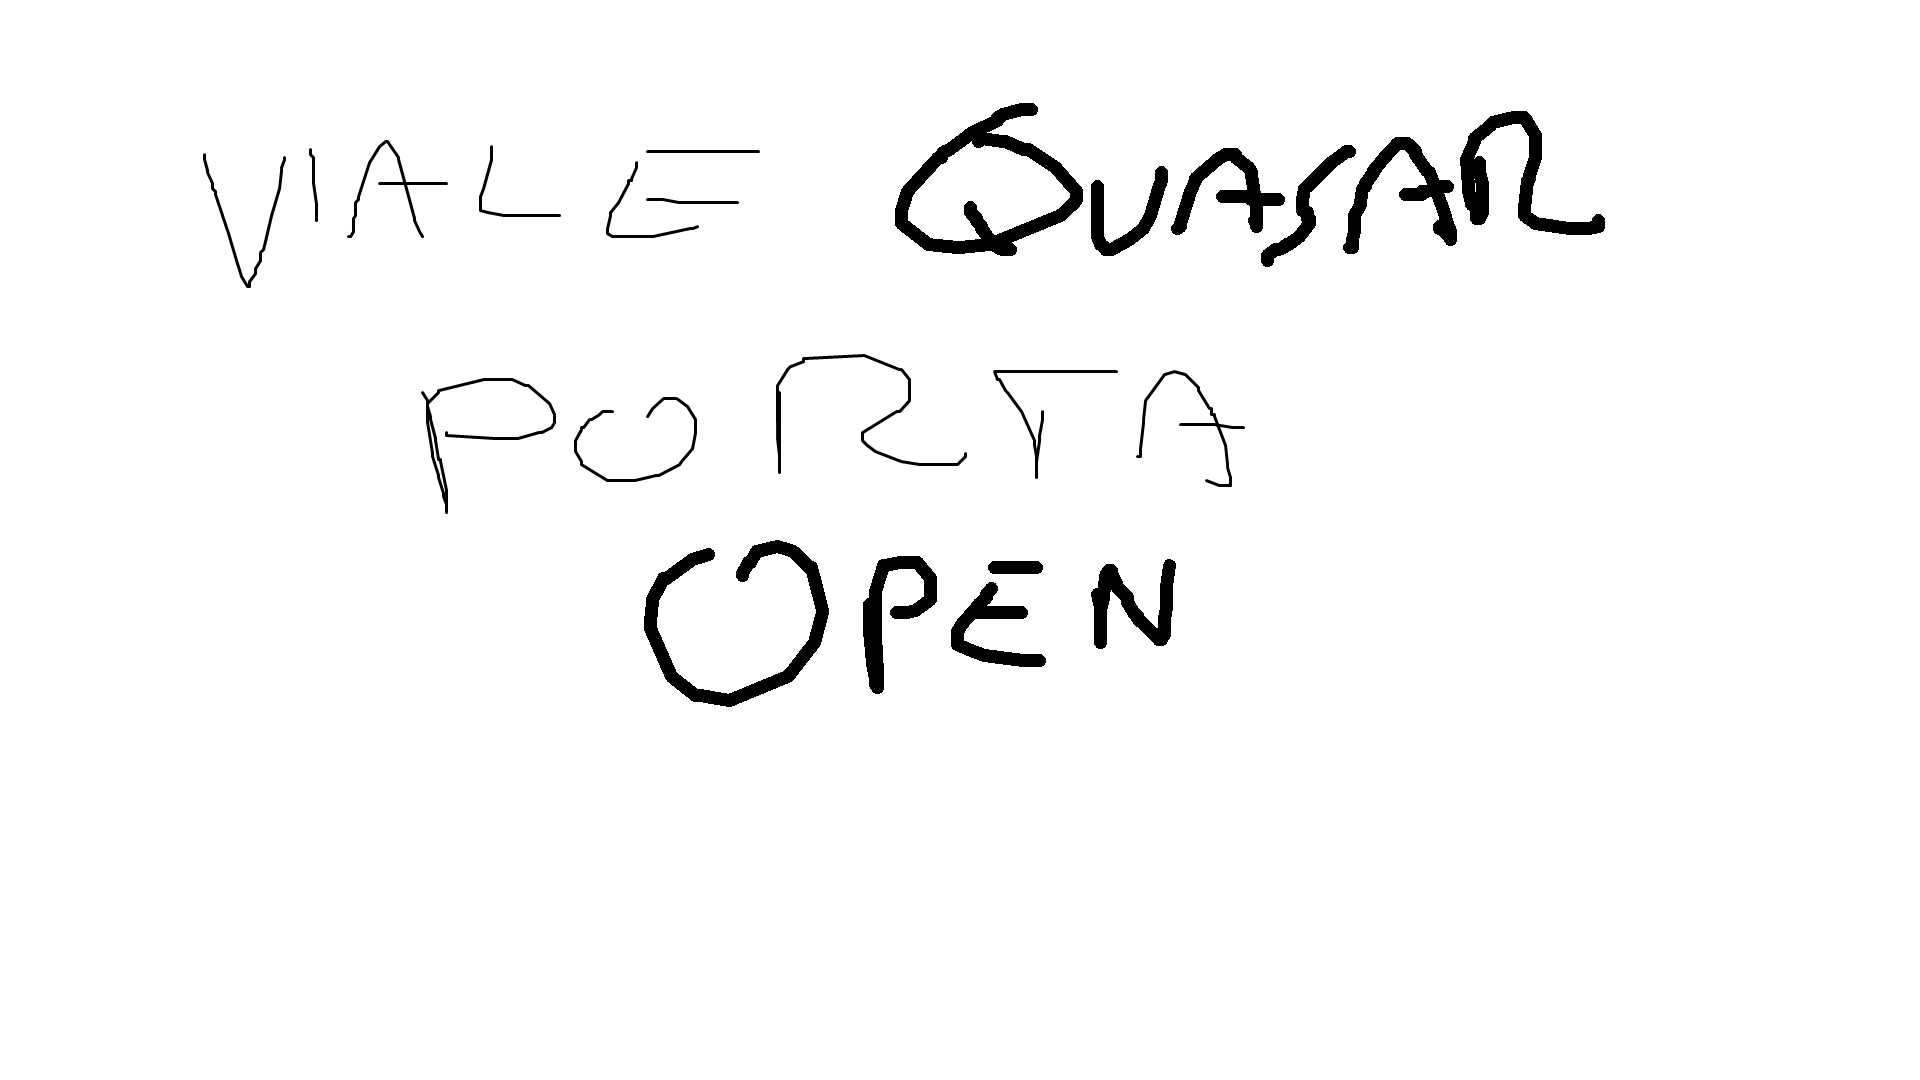 VIALE QUASAR
PORTA
OPEN